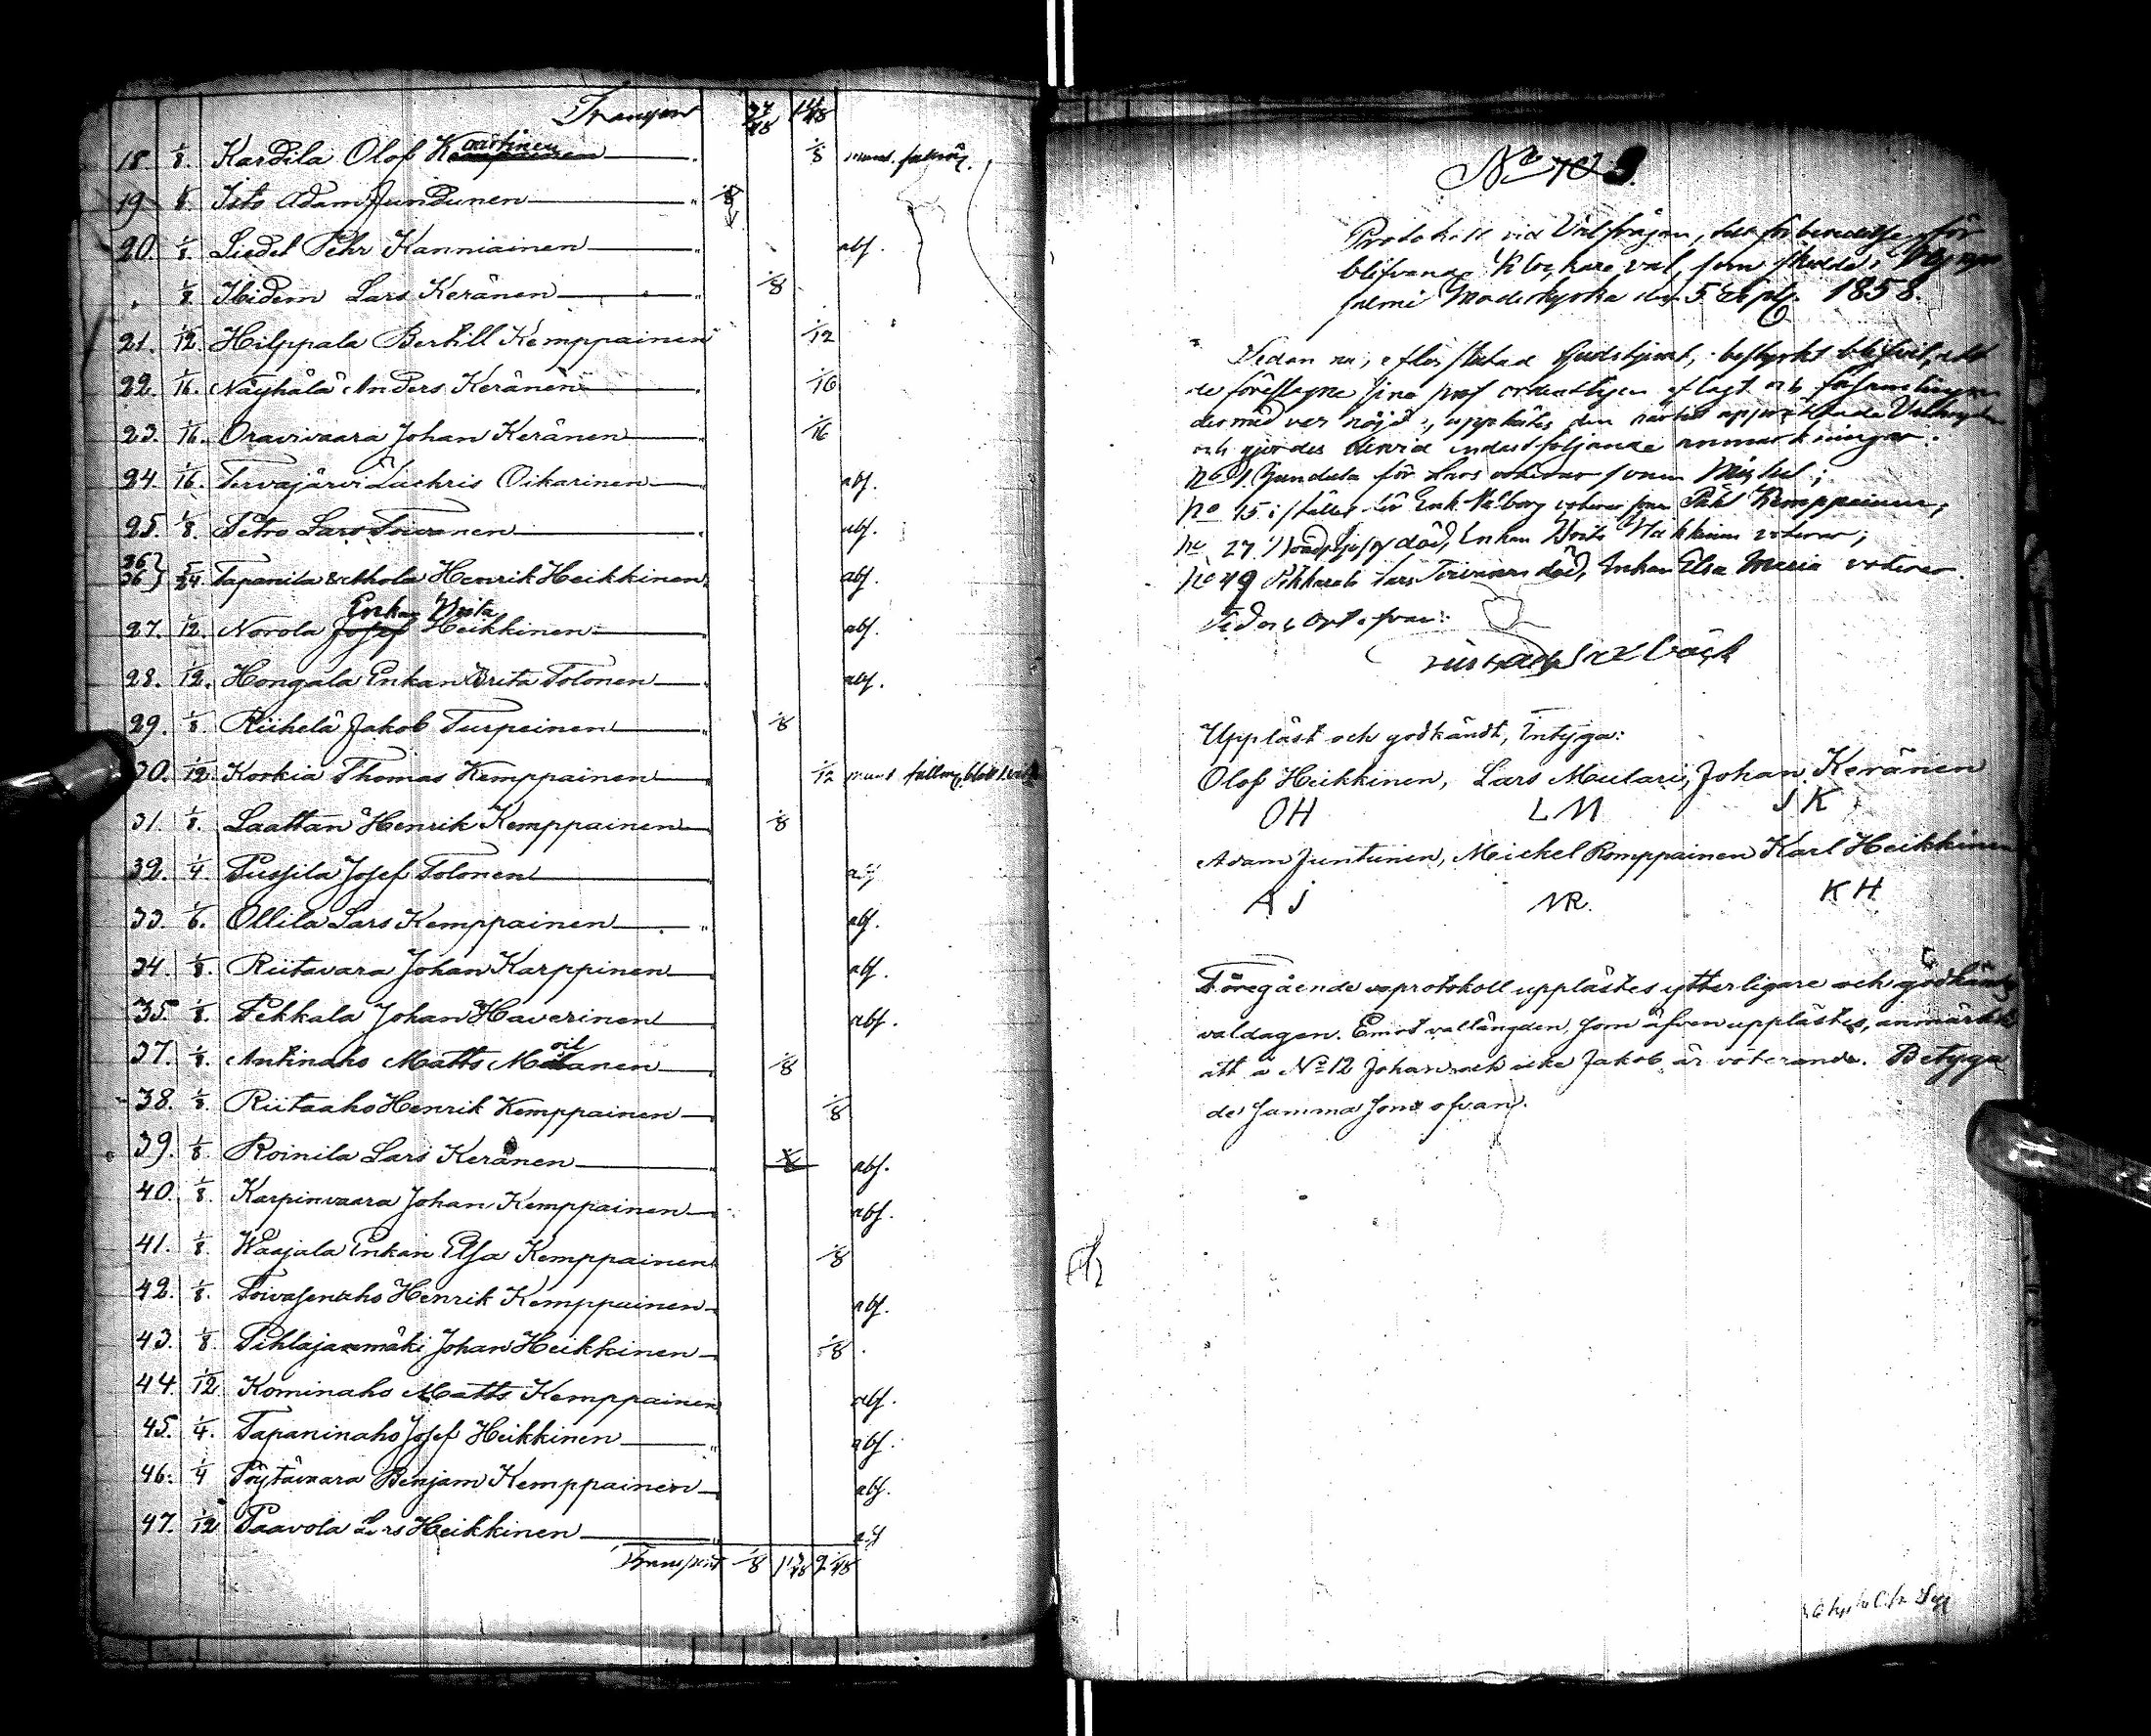 Transport 37/48 14/48
18. 1/8. Kardila Olof Kartinen 1/8 mund. fullm.
19 1/8. Isto Adam Jundunen 1/8
20. 1/8. Liedet Pehr Kanniainen abs.
" 1/8. Ibidem Lars Keränen 1/8
21. 1/12. Hilppala Bertill Kemppainen 1/12
22. 1/16. Näyhälä Anders Keränen 1/16
23. 1/16. Oravivaara Johan Keränen 1/16
24. 1/16. Tervajärvi Zachris Oikarinen abs.
25. 1/8. Petro Lars Toivanen abs.
26 36 5/24 Tapanila & Ahola Henrik Heikkinen abs.
27. 1/12. Norola Josef Enkan Brita Heikkinen abs.
28. 1/12. Hongala Enkan Brita Tolonen abs.
29. 1/8. Riihelä Jakob Turpeinen 1/8
30. 1/12. Korkia Thomas Kemppainen 1/12 mund fullm.
31. 1/8. Laattan Henrik Kemppainen 1/8
32. 1/4. Pussila Josef Tolonen abs
33. 1/6. Ollila Lars Kemppainen abs.
34. 1/8. Riitavara Johan Karppinen abs.
35. 1/8. Pekkala Johan Haverinen abs.
37. 1/8. Antinaho Matts Moilanen 1/8
38. 1/8. Riitaaho Henrik Kemppainen 1/8
39. 1/8. Roinila Lars Keränen abs.
40. 1/8. Karpinvaara Johan Kemppainen abs.
41. 1/8. Waajala Enkan Elsa Kemppainen 1/8
42. 1/8. Toivasenaho Henrik Kemppainen abs.
43. 1/8. Pihlajanmäki Johan Heikkinen 1/8
44. 1/12 Kominaho Matts Kemppainen abs.
45. 1/4. Tapaninaho Josef Heikkinen abs.
46. 1/4 Pöytävaara Benjam Kemppainen abs.
47. 1/12 Paavola Lars Heikkinen abs
Transport 1/8
No
Protokoll vid Valfrågan, till förberedelse för
blifvande Klockare val, som skedde i
salmi Moderkyrka den 5 Sept. 1858.
Sedan nu, efter slutad Gudstjenst,
de föreslagne sina prof ordentligen aflagt och församlingen
dermed var nöjd, upplästes den
och gjordes dervid endast följande anmärkningar:
No 1. Jundula för Lars voterar sonen Michel;
No 15 i stället för Enk. Walborg voterar sonen Påhl Kemppainen;
No 27 Norola Josef död, Enkan Brita Heikkinen voterar;
No 49 Pikkarala Lars Toivanen död, Enkan Elsa Maria voterar.
Tid och Ort ofvan:
Uppläst och godkändt, intyga:
Olof Heikkinen, Lars Mulari, Johan Keränen
OH LM JK
Adam Juntunen, Mickel Romppainen Karl Heikkinen
AJ MR. KH
Föregående protokoll upplästes ytterligare och godkändes
valdagen. Emot vallängden, som äfven upplästes, anmärktes
att å No 12 Johan och icke Jakob är voterande. Betyga
de samma som ofvan.